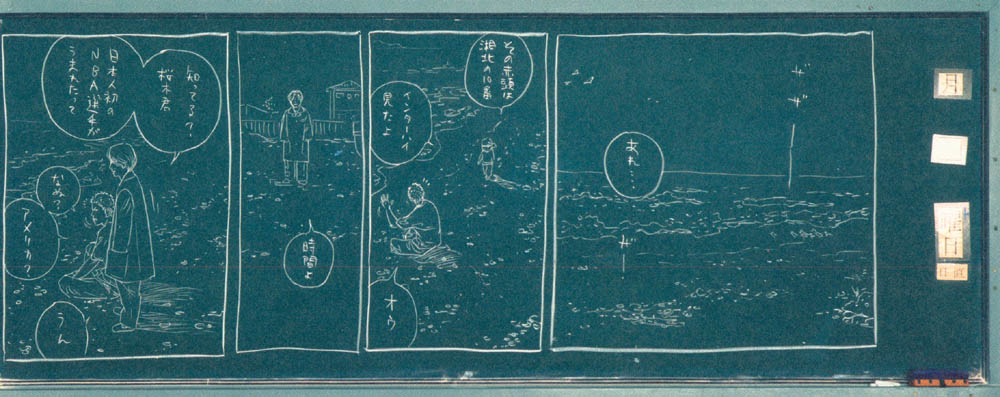 月
曜日
日直
ザ
ザ
あれ…
ザ
その赤頭は
湘北の10番
インターハイ
見たよ
オウ
時間よ
知ってる?
桜木君
日本人初の
NBA選手が
うまれたって
なぬ?
アメリカ?
うん